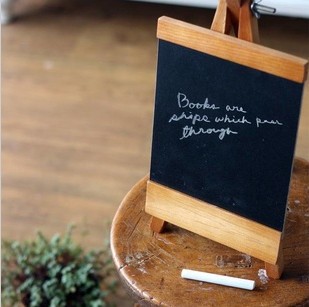 Books are
ships which pass
through